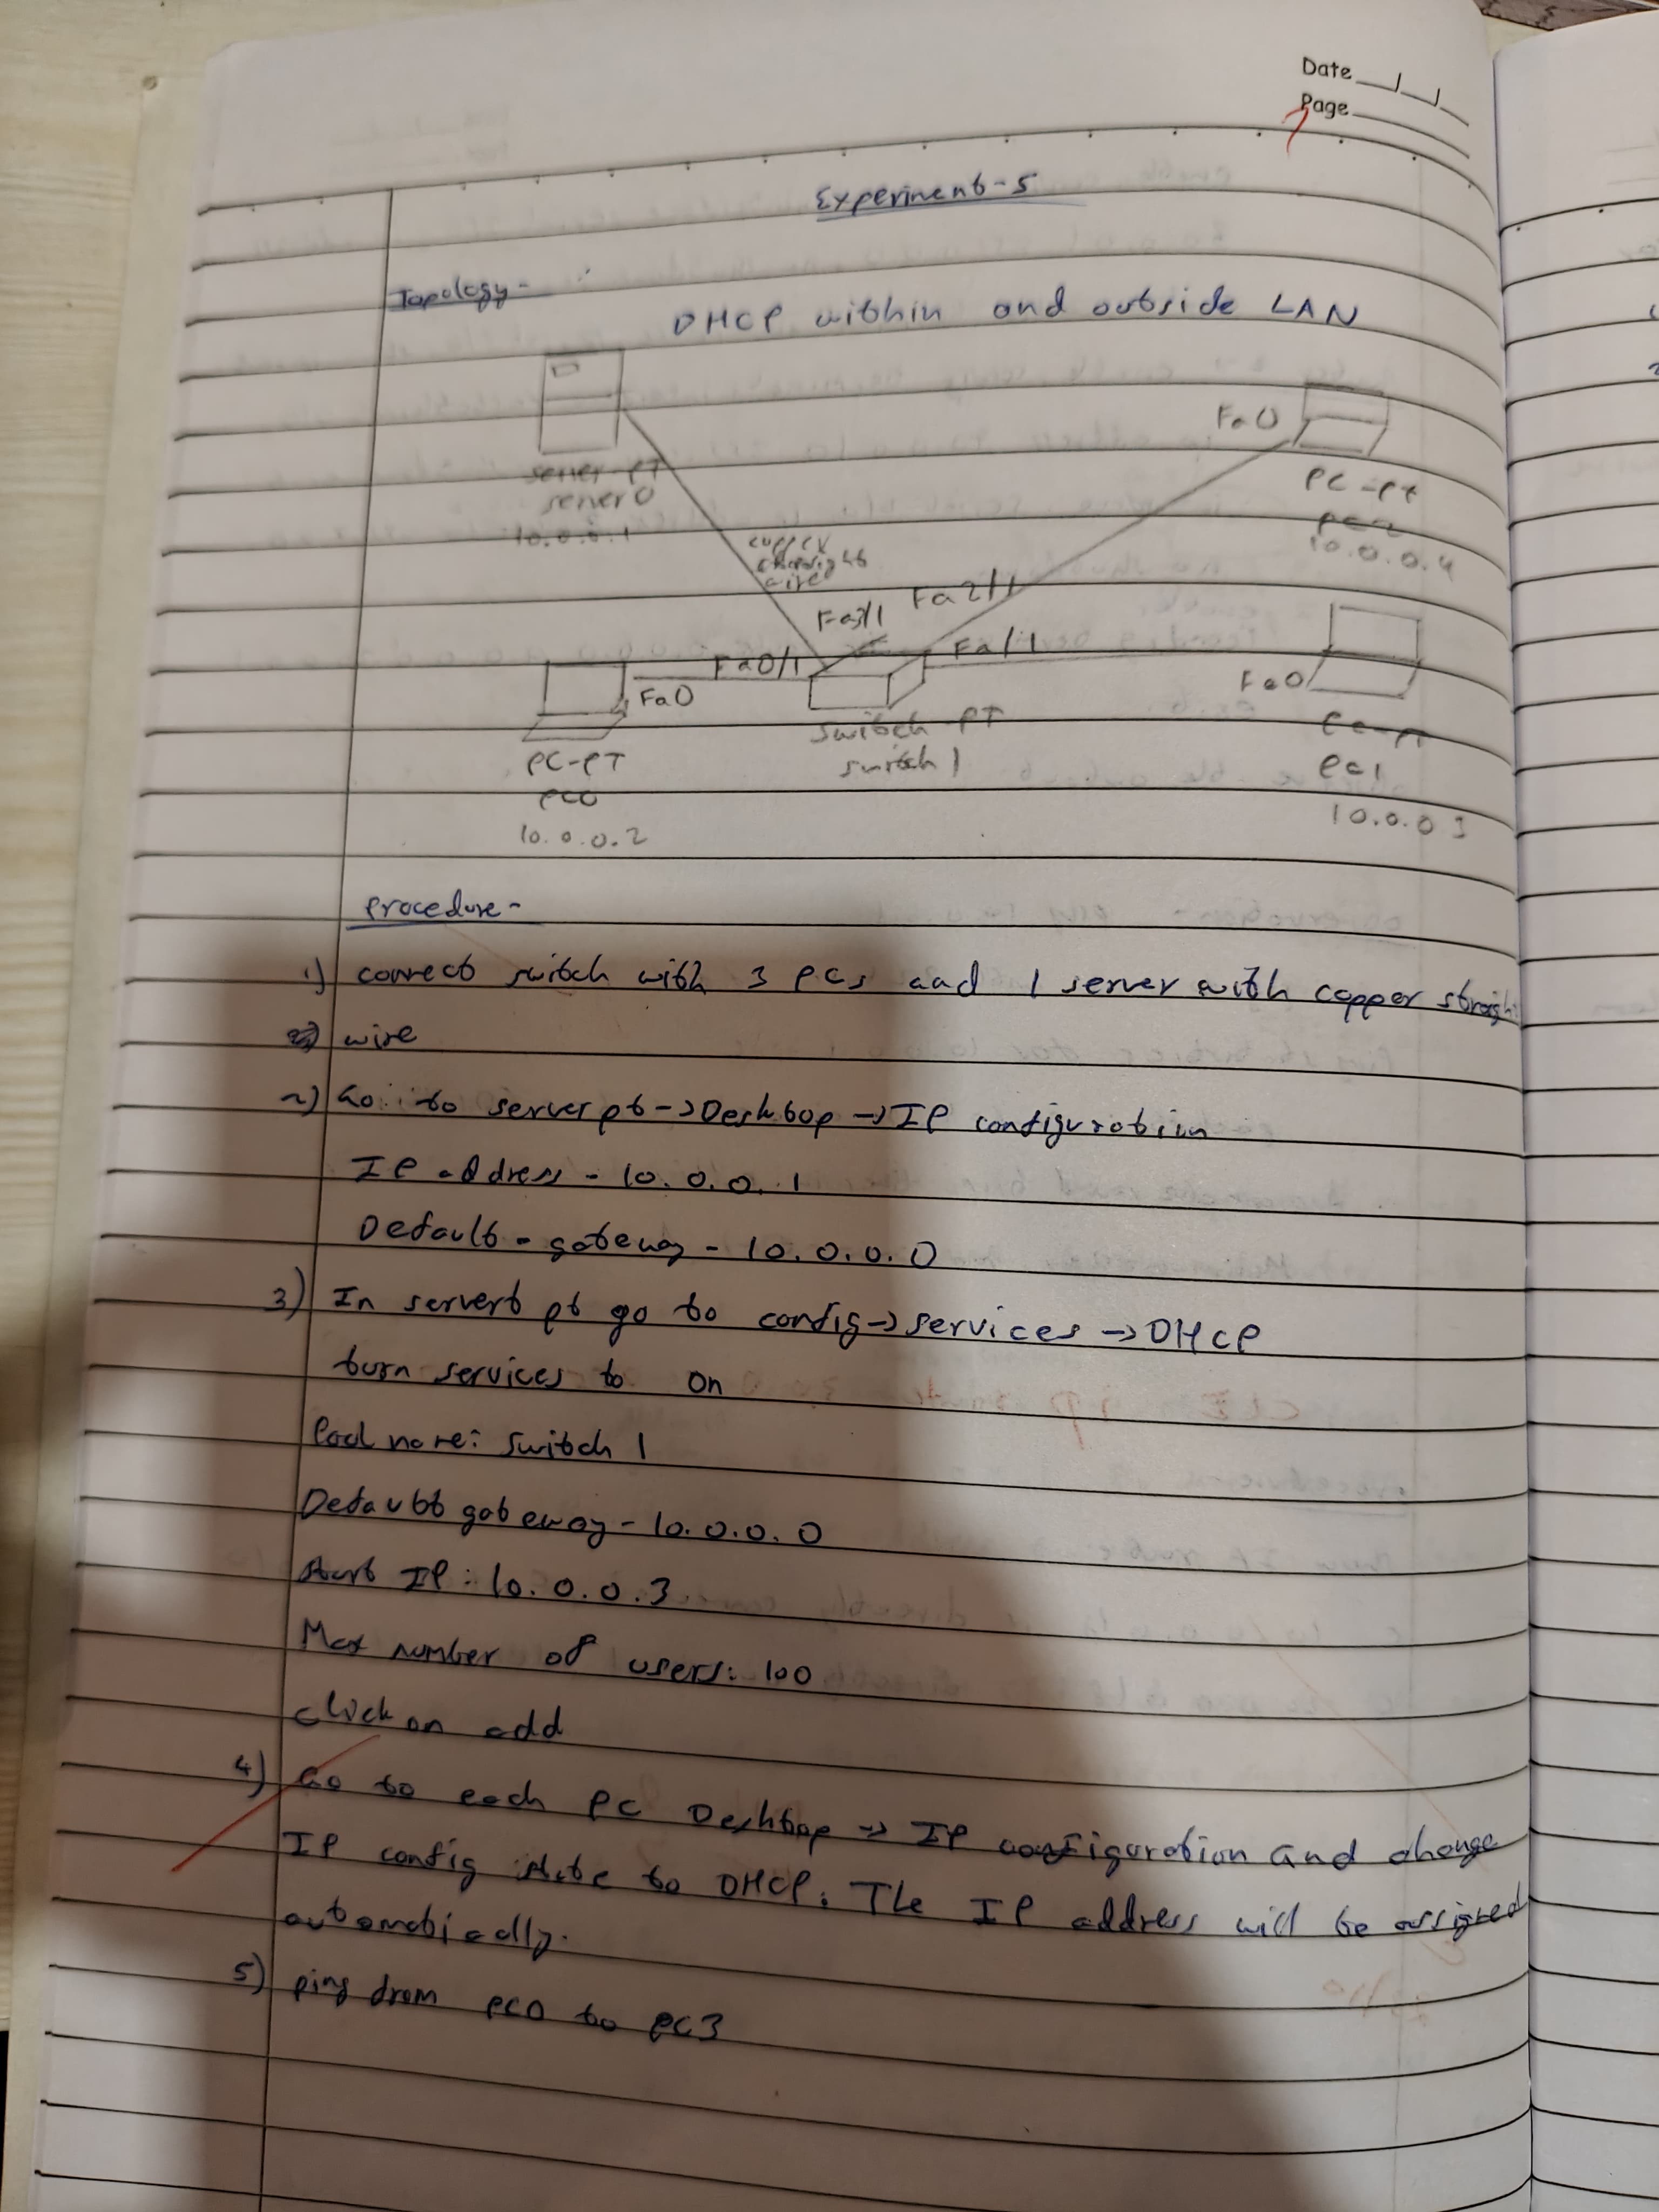 Date
Page
Experiment-5
Topology-
DHCP within and outside LAN
server-PT
server0
10.0.0.1
Fa0
PC-Pt
PC2
10.0.0.4
copper
straight
wire
Fa3/1
Fa2/1
Fa0/1
Fa/1
Fa0
Fa0
Switch-PT
switch1
PC-PT
PC0
10.0.0.2
PC-PT
PC1
10.0.0 3
Procedure-
1) connect switch with 3 PCs and 1 server with copper straight
wire
2) Go to server pt->Desktop->IP configuration
IP address - 10.0.0.1
Default - gateway - 10.0.0.0
3) In servert pt go to config->services->DHCP
turn services to on
Pool name: switch 1
Default gateway - 10.0.0.0
Start IP: 10.0.0.3
Max number of users: 100
click on add
4) Go to each PC Desktop -> IP configuration and change
IP config state to DHCP. The IP address will be assigned
automatically.
5) ping from PC0 to PC3